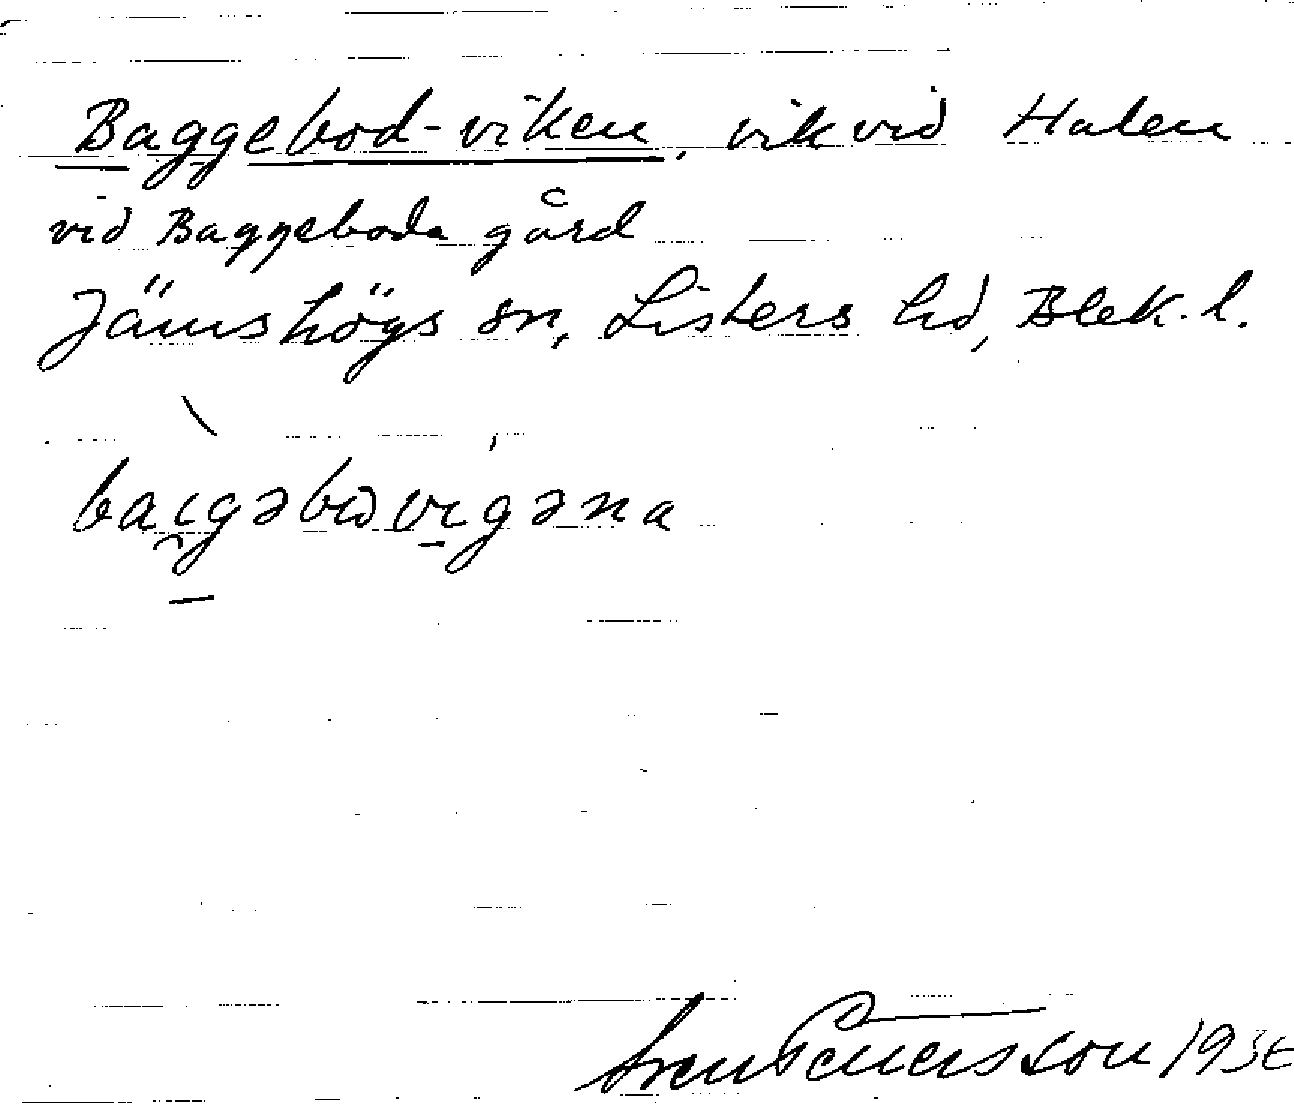 Baggebod-viken, vik vid Halen
vid Baggeboda gård
Jämshögs sn, Listers hd, Blek. l.
Sven Petersson 1936